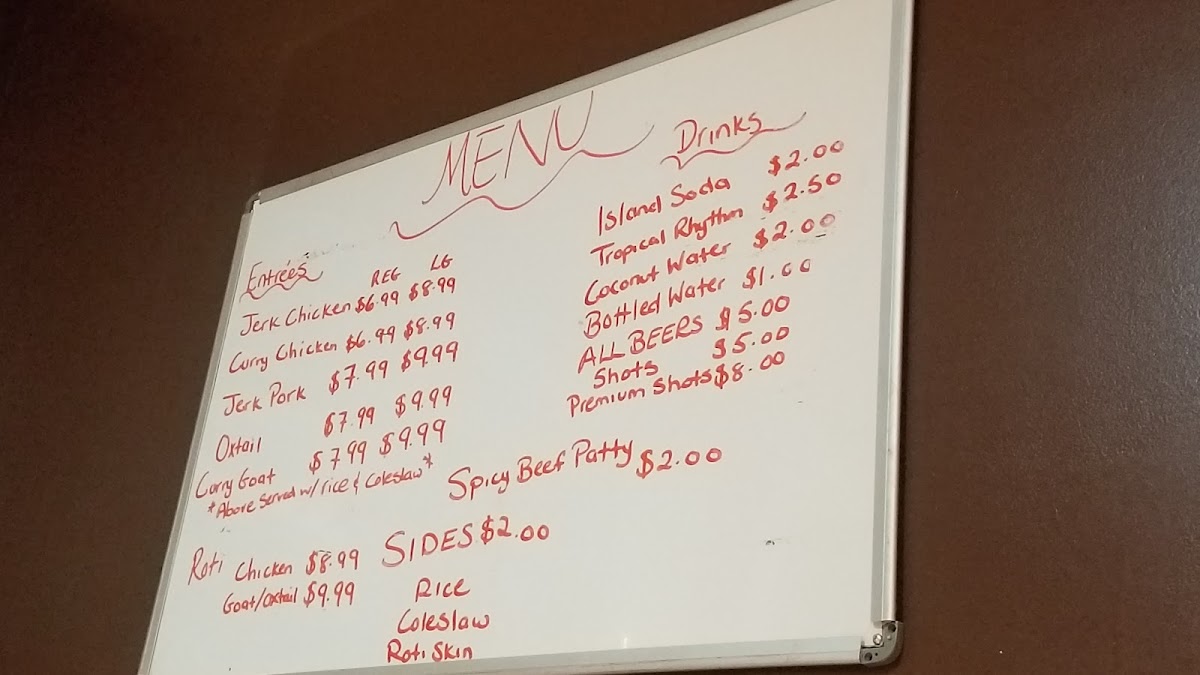 MENU
Entrées REG LG
Jerk Chicken $6.99 $8.99
Curry Chicken $6.99 $8.99
Jerk Pork $7.99 $9.99
Oxtail $7.99 $9.99
Curry Goat $7.99 $9.99
*Above Served w/ rice & Coleslaw*
Roti Chicken $8.99
Goat/Oxtail $9.99
Drinks
Island Soda $2.00
Tropical Rhythm $2.50
Coconut Water $2.00
Bottled Water $1.00
ALL BEERS $5.00
Shots $5.00
Premium Shots $8.00
Spicy Beef Patty $2.00
SIDES $2.00
Rice
Coleslaw
Roti Skin